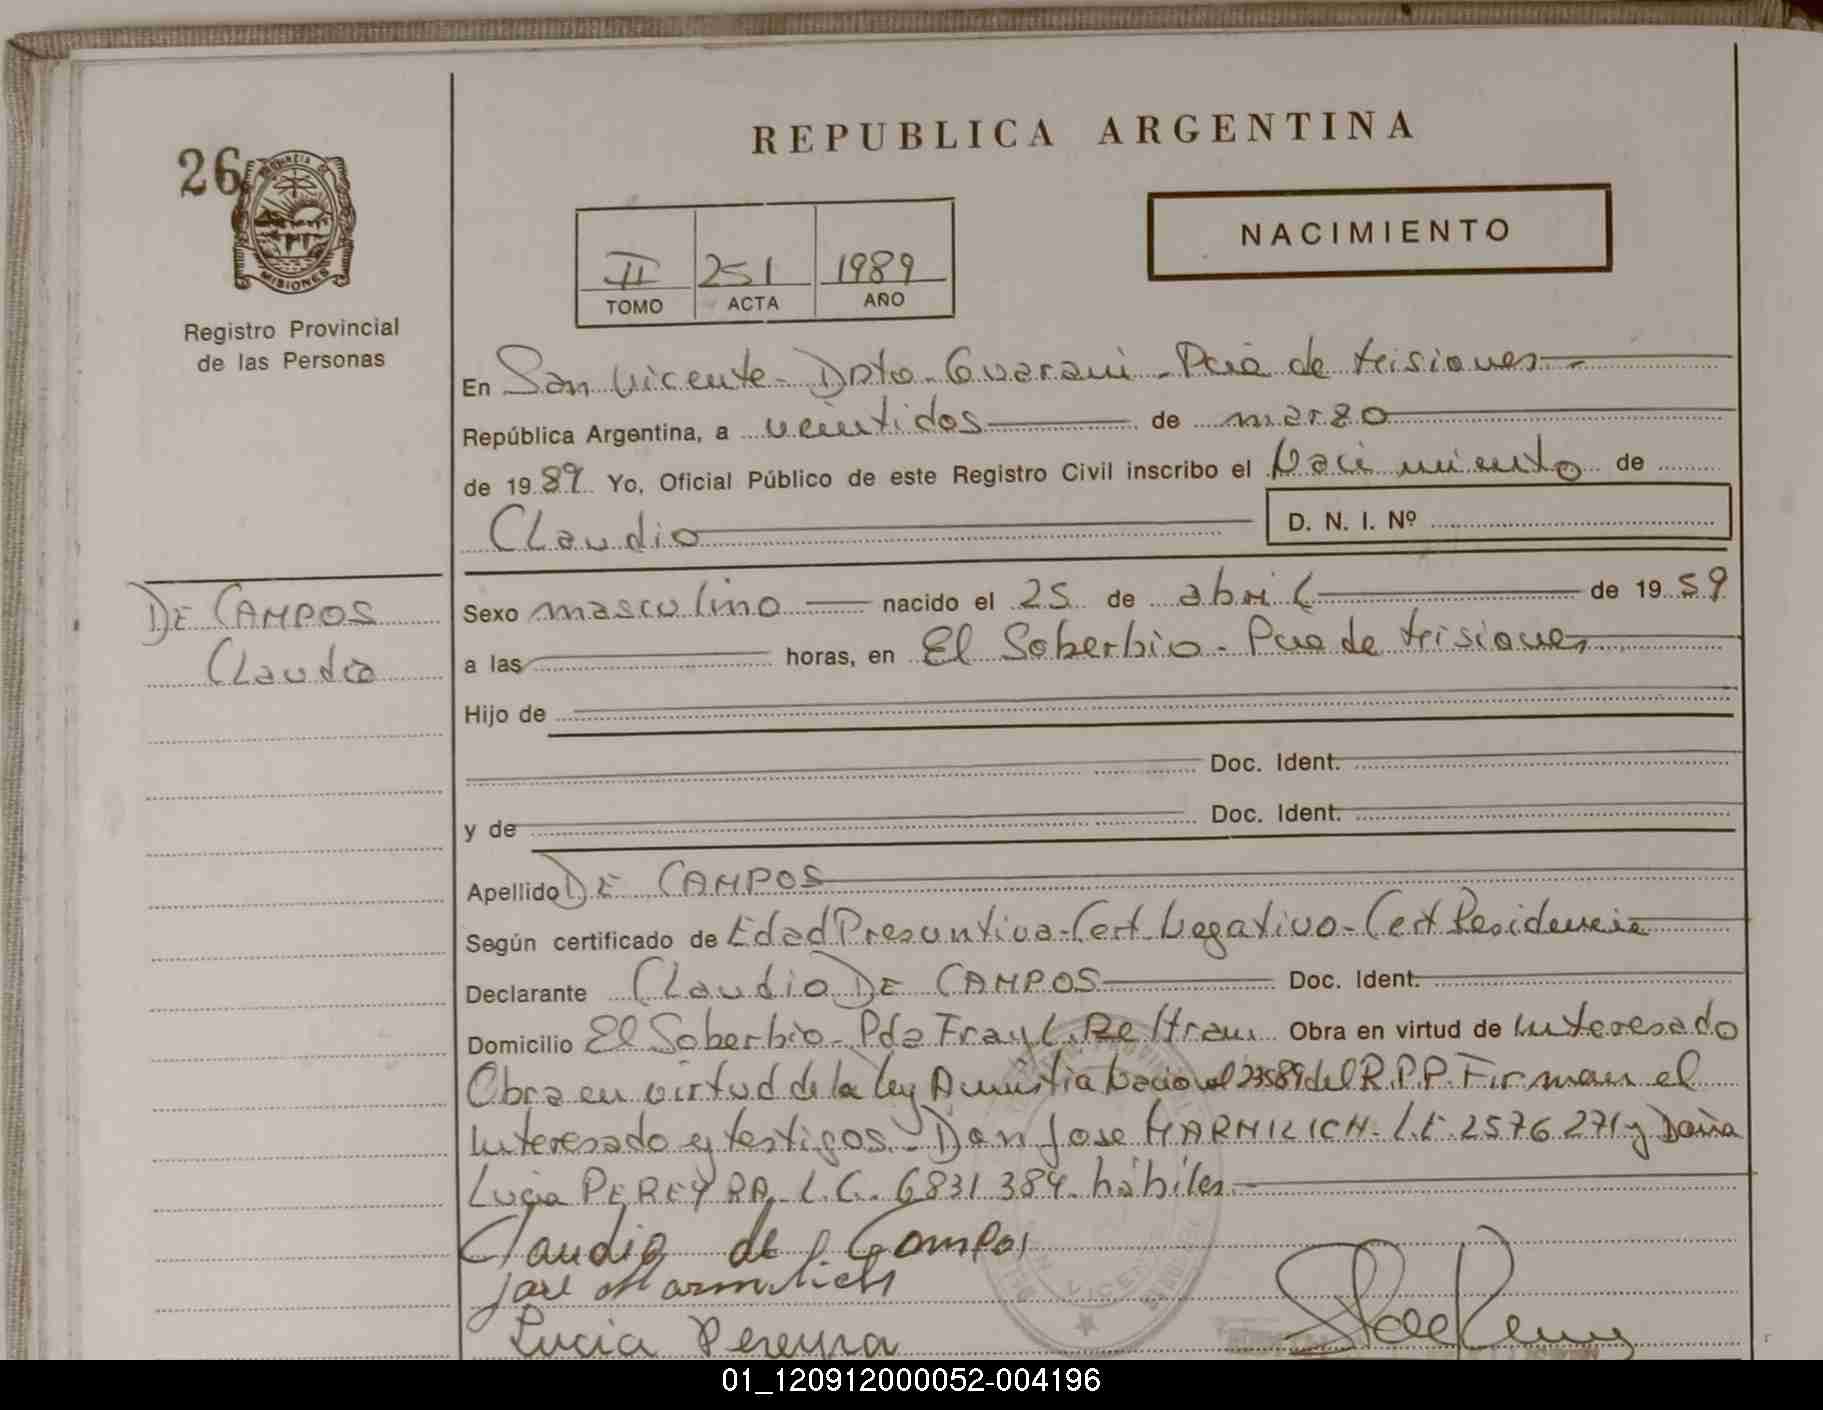 REPUBLICA ARGENTINA
26
MISIONES
Registro Provincial
de las Personas
II 251 1989
TOMO ACTA AÑO
NACIMIENTO
En San Vicente - Dpto - Guarani - Pcia de Misiones -
República Argentina, a veintidos de marzo
de 1989 Yo, Oficial Público de este Registro Civil inscribo el Nacimiento de
Claudio D. N. I. Nº
DE CAMPOS
Claudio
Sexo masculino nacido el 25 de abril de 1959
a las horas, en El Soberbio - Pcia de Misiones
Hijo de
Doc. Ident.
y de Doc. Ident.
Apellido DE CAMPOS
Según certificado de Edad Presuntiva - Cert Negativo - Cert Residencia
Declarante Claudio DE CAMPOS Doc. Ident.
Domicilio El Soberbio - Pda Fray L. Beltran Obra en virtud de Interesado
Obra en virtud de la ley Amnistia Nacional 23589 del R.P.P. Firman el
Interesado y testigos - Don Jose MARMILICH - L.E. 2576271 y Doña
Lucia PEREYRA - L.C. 6831384 - hábiles -
Claudio de Campos
José Marmilich
Lucia Pereyra
01_120912000052-004196